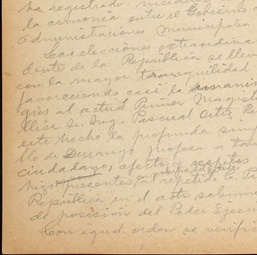 ha registrado
la armonía entre el Gobierno
Administraciones Municipales
Las elecciones extraordina
dente de la República se lle
con la mayor tranquilidad
favoreciendo casi la unanimi
gios al actual Primer Magist
blica Sr. Ing. Pascual Ortiz R
este hecho la profunda simp
blo de Durango profesa a tan
ciudadano, afecto y respetos
hizo presentes, al repetido C. P
República en el acto solemn
de posesión del Poder Ejecu
Con igual orden se verific